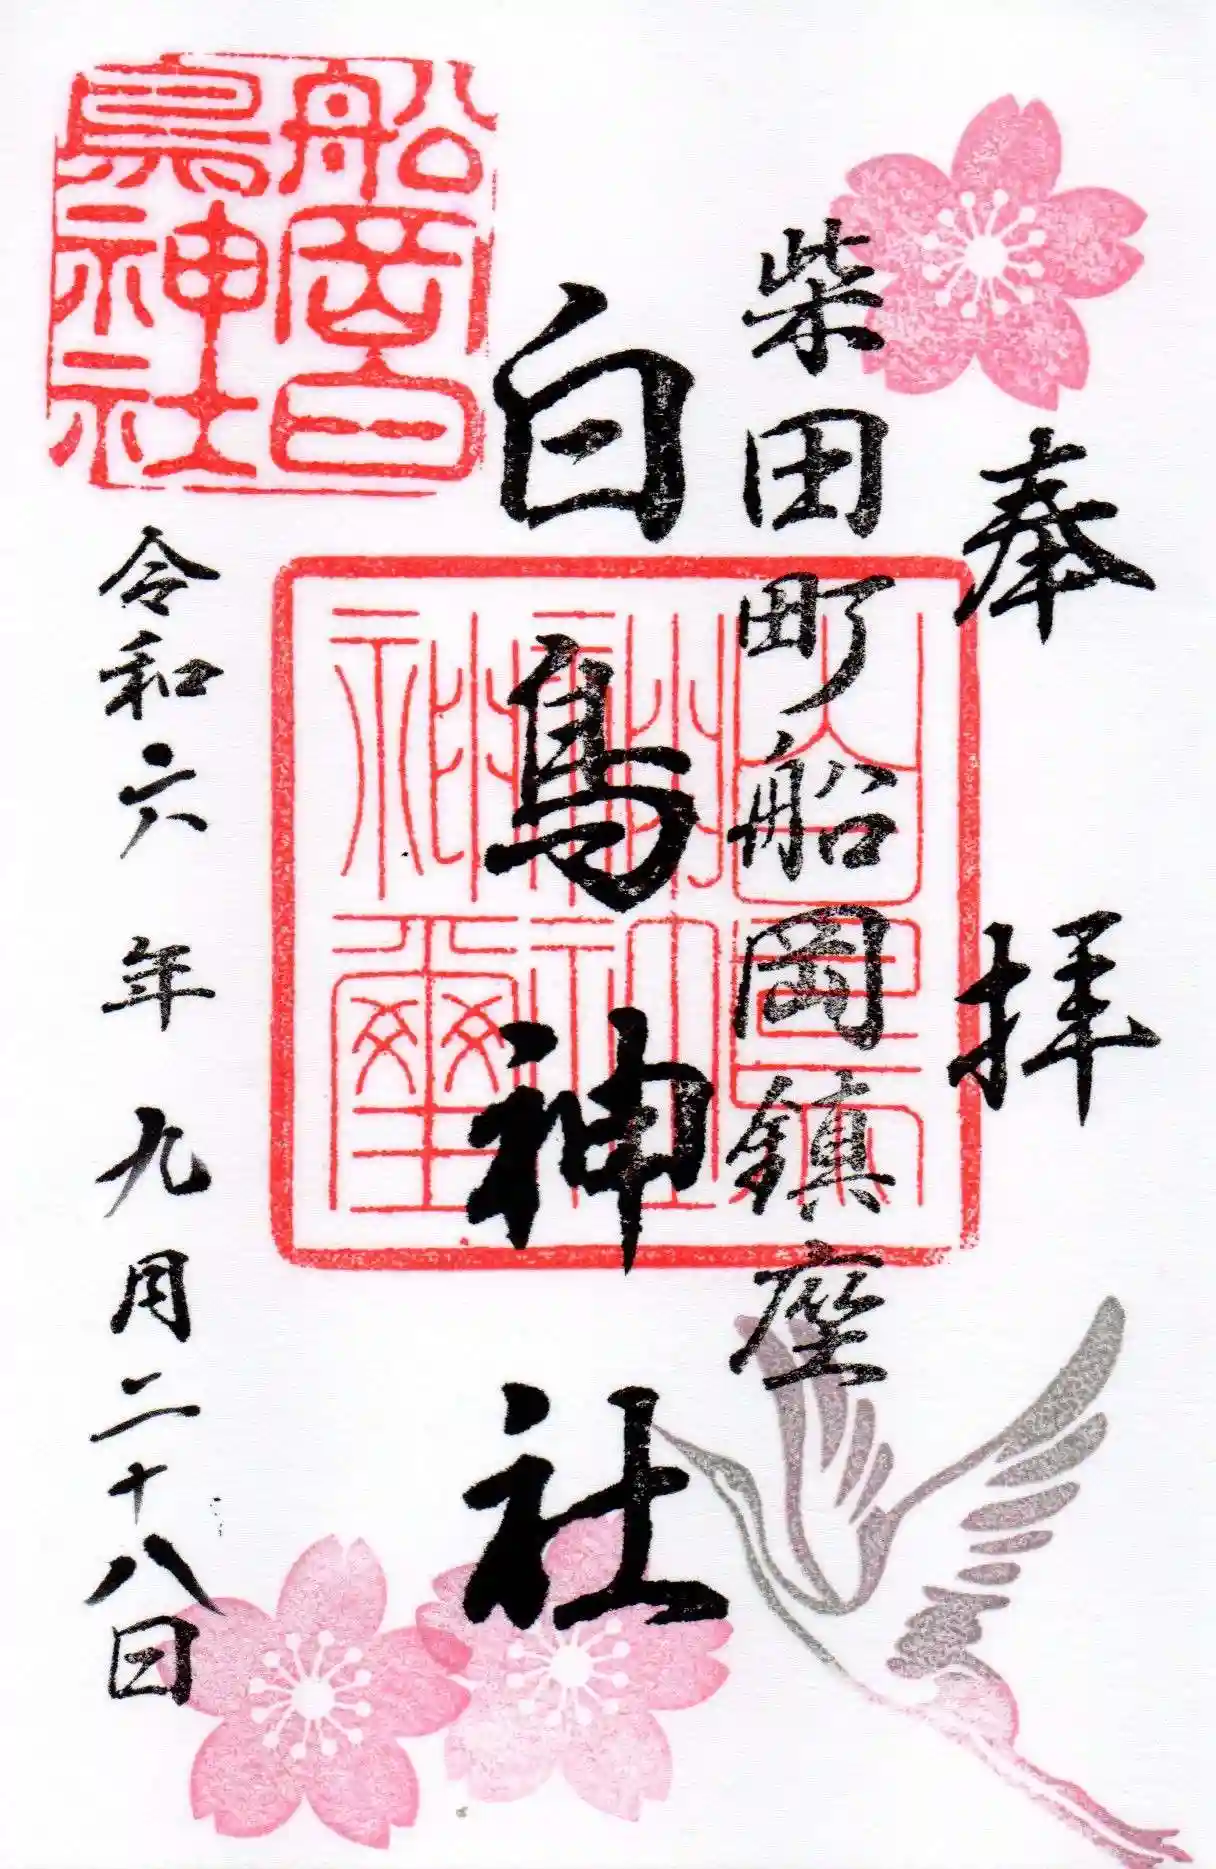 奉拝
柴田町船岡鎮座
白鳥神社
船岡白
鳥神社
令和六年九月二十八日